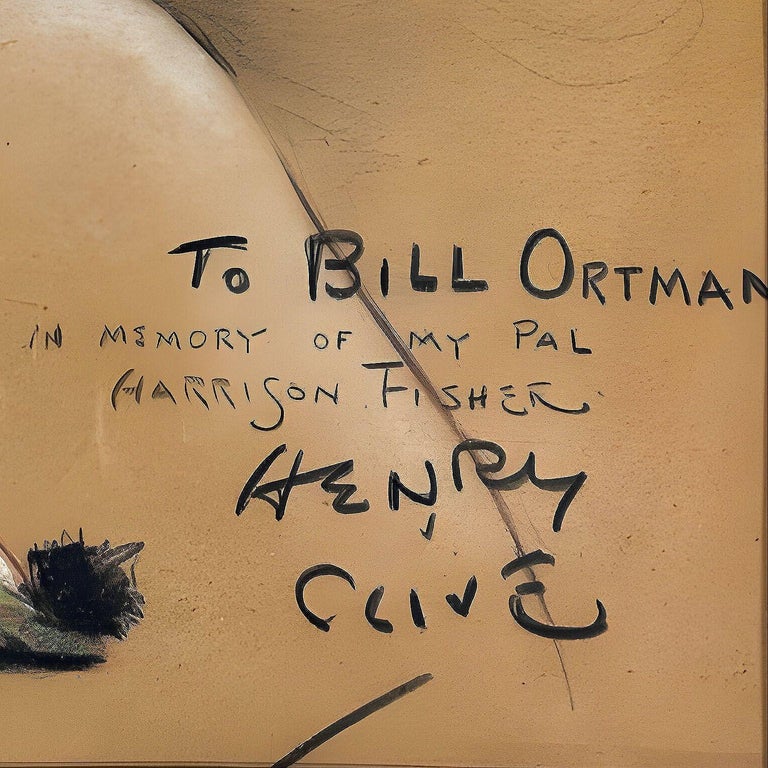 To BILL ORTMAN
IN MEMORY OF MY PAL
HARRISON FISHER
HENRY
CLIVE